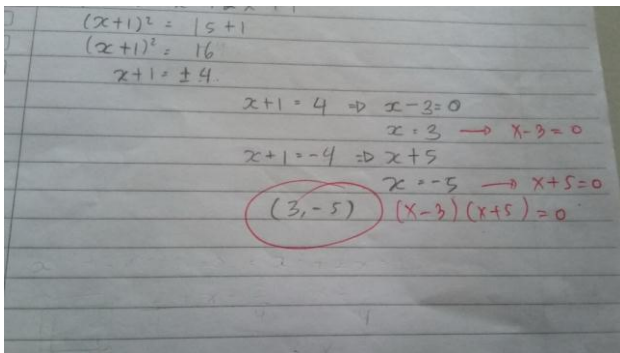 (x+1)² = 15+1
(x+1)² = 16
x+1 = ±4.
x+1 = 4 ⇒ x-3=0
x = 3 → x-3=0
x+1=-4 ⇒ x+5
x = -5 → x+5=0
(3,-5) (x-3)(x+5)=0